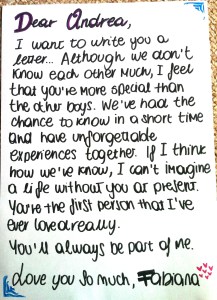 Dear Andrea,
I want to write you a
letter... Although we don't
know each other much, I feel
that you're more special than
the other boys. We've had the
chance to know in a short time
and have unforgettable
experiences together. If I think
how we've know, I can't imagine
a life without you at present.
You're the first person that I've
ever loved really.
You'll always be part of me.
Love you so much, Fabiana